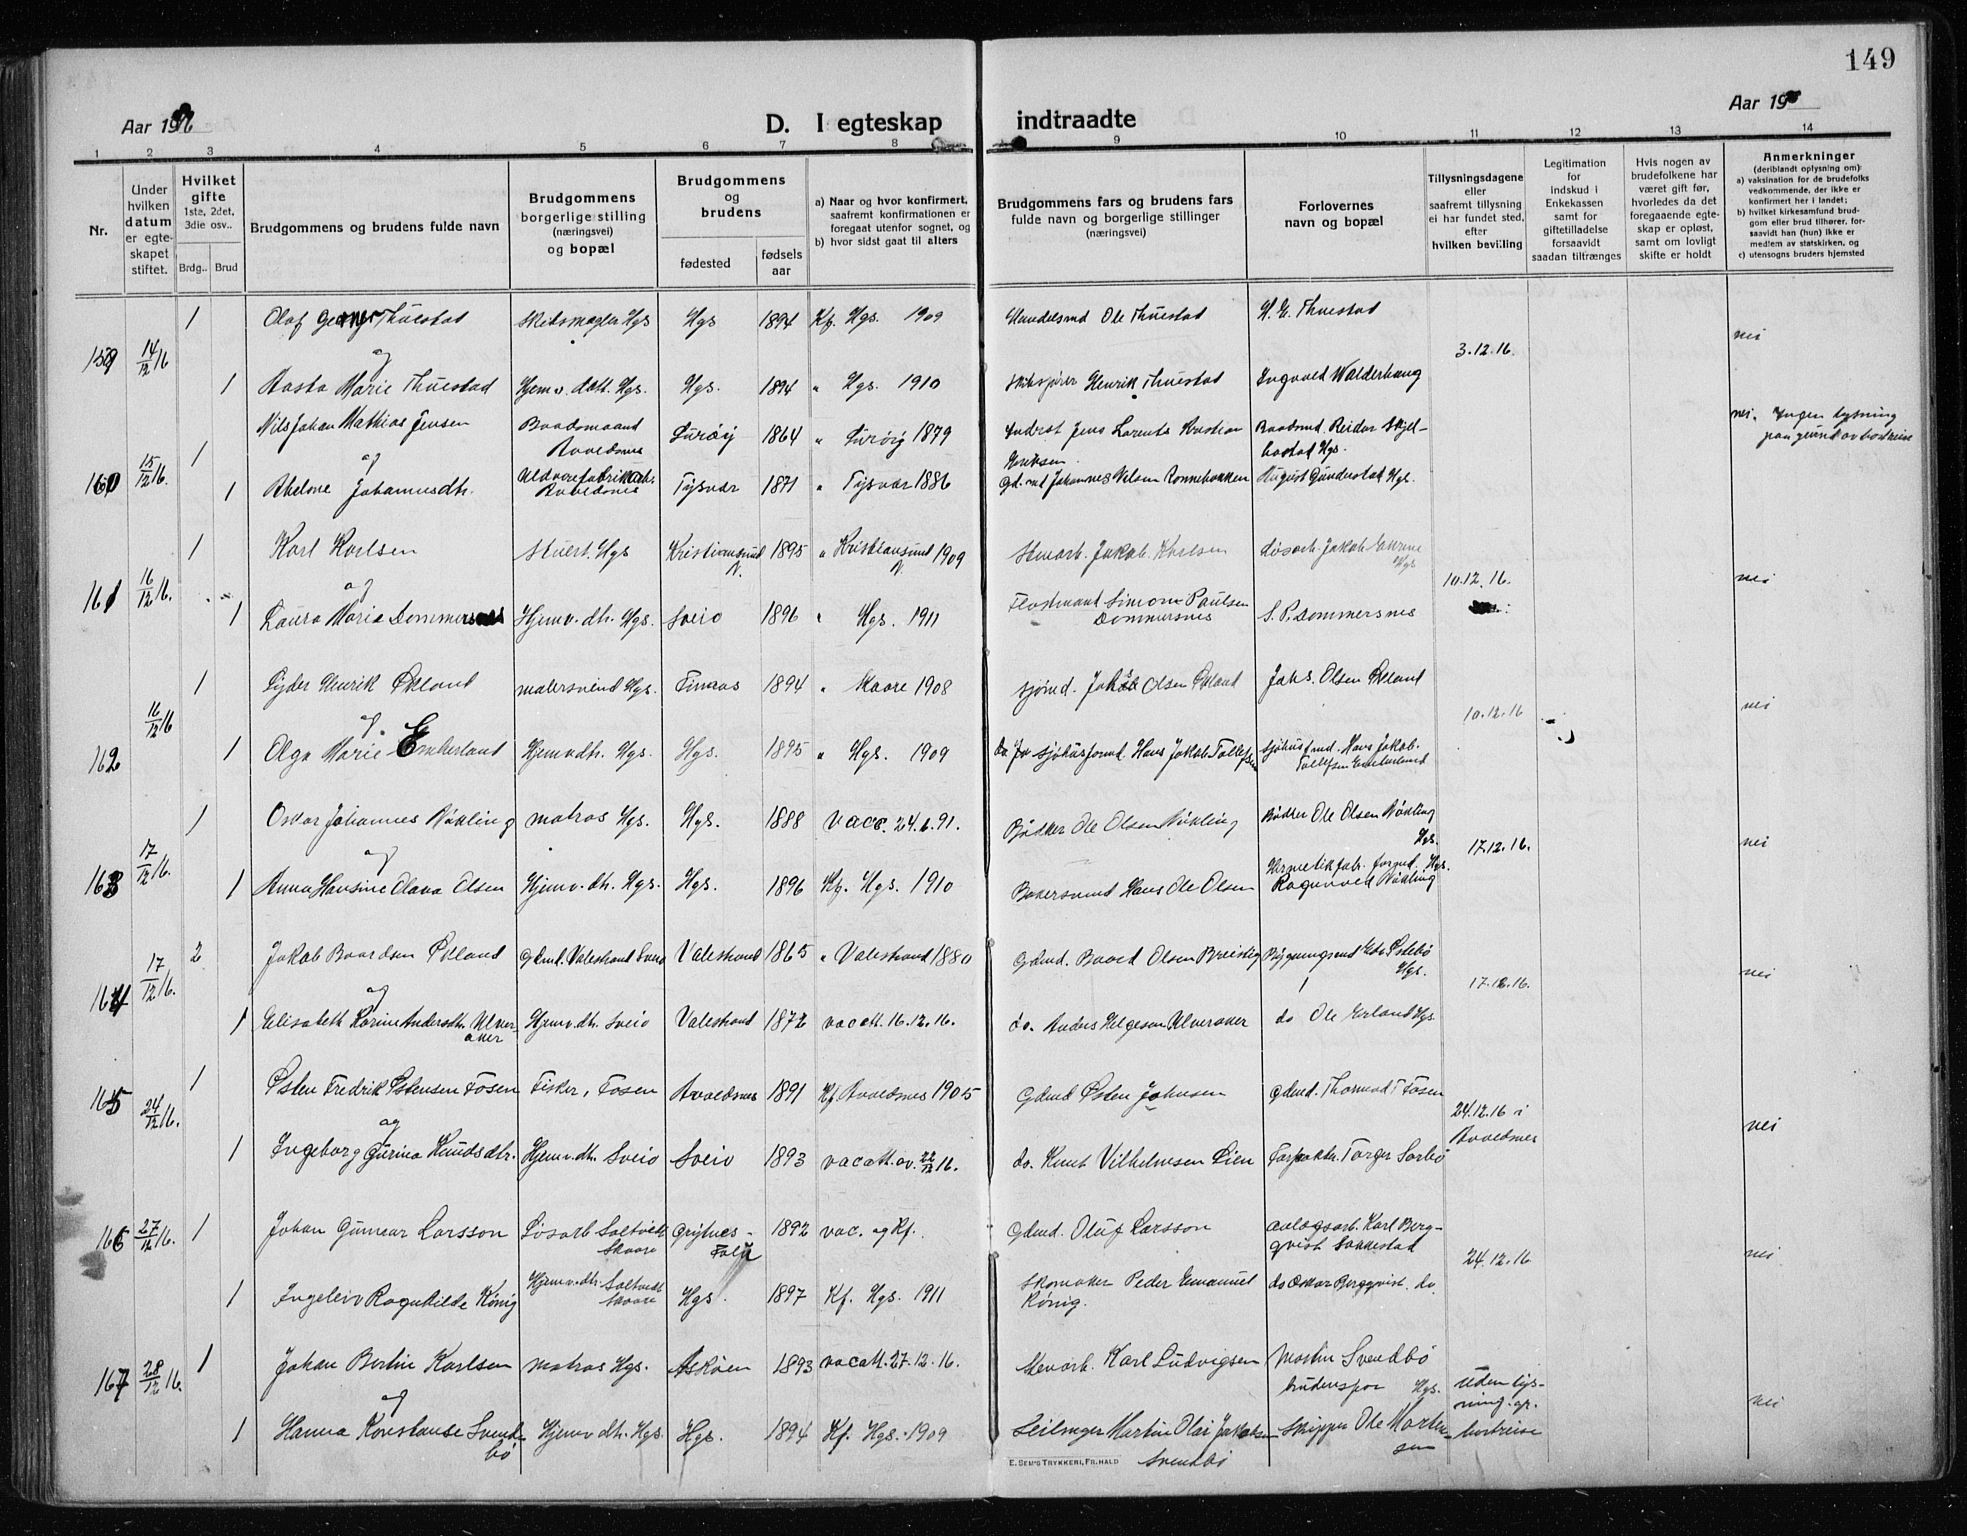 149
Aar 1916
D. I egteskap indtraadte
Aar 19
1 2 3 4 5 6 7 8 9 10 11 12 13 14
Nr.
Under hvilken datum er egte-skapet stiftet.
Hvilket gifte
1ste, 2det, 3die osv..
Brdg.. Brud
Brudgommens og brudens fulde navn
Brudgommens borgerlige stilling (næringsvei) og bopæl
Brudgommens og brudens
fødested
fødsels aar
a) Naar og hvor konfirmert, saafremt konfirmationen er foregaat utenfor sognet, og
b) hvor sidst gaat til alters
Brudgommens fars og brudens fars fulde navn og borgerlige stillinger (næringsvei)
Forlovernes navn og bopæl
Tillysningsdagene eller saafremt tillysning ei har fundet sted, efter hvilken bevilling
Legitimation for indskud i Enkekassen samt for giftetilladelse forsaavidt saadan tiltrænges
Hvis nogen av brudefolkene har været gift før, hvorledes da det foregaaende egte-skap er opløst, samt om lovligt skifte er holdt
Anmerkninger
(deriblandt oplysning om):
a) vaksination for de brudefolks vedkommende, der ikke er konfirmert her i landet;
b) hvilket kirkesamfund brud-gom eller brud tilhører, for-saavidt han (hun) ikke er medlem av statskirken, og
c) utensogns bruders hjemsted
159 14/12 16 1 Olaf Thuestad Skibsmægler Hgs Hgs 1894 Kf. Hgs. 1909 Handelsmd Ole Thuestad H. E. Thuestad 3.12.16. nei
og
1 Aasta Marie Thuestad Hjemv. datt. Hgs. Hgs. 1894 " Hgs. 1910 Skibsfører Henrik Thuestad Ingvald Walderhaug
160 15/12 16. 1 Nils Johan Mathias Jensen Baadsmand Avaldsnes Lurøy 1864 " Lurøy 1879 Inderst Jens Lorents Eriksen Baadsmd. Reidar Skjel-
bostad Hgs. nei. Ingen lysning
paa grund av bortreise
og
1 Abelone Johannesdtr. Avaldsnes Tysvær 1871 " Tysvær 1886 Gd.md Johannes Nelsen Rønnebakken August Gunderstad Hgs.
161 16/12 16. 1 Karl Karlsen Stuert. Hgs Kristiansund N. 1895 " Kristiansund N. 1909 Stenarb. Jakob Karlsen Løsarb. Jakob Hgs 10.12.16. nei
og
1 Laura Marie Dommersnes Hjemv. dtr. Hgs. Sveio 1896 " Hgs. 1911 Simon Paulsen
Dommersnes S. P. Dommersnes
162 16/12 16 1 Lyder Henrik Økland malersvend Hgs. Finaas 1894 " Skaare 1908 Sjømd. Jakob Olsen Økland Johs. Olsen Økland 10.12.16 nei
og
1 Olga Marie Emberland Hjemv dtr. Hgs. Hgs. 1895 " Hgs. 1909 Sjøhusformd. Hans Jakob Tollefsen Sjøhusfmd. Hans Jakob
Tollefsen Emberland
163 17/12 16. 1 Oskar Johannes Vikling matros Hgs. Hgs. 1888 Vacc. 24.6.91. Bødker Ole Olsen Vikling Bødker Ole Olsen Vikling
Hgs. 17.12.16. nei
og
1 Anna Hansine Olava Olsen Hjemv. dtr. Hgs. Hgs. 1896 Kf. Hgs. 1910 Bakersvend Hans Ole Olsen Hermetikfab. formd. Hgs.
Ragnvald Vikling
164 17/12 16. 2 Jakob Baardsen Økland Gdmd. Valestrand Sveio Valestrand 1865 " Valestrand 1880 Gdmd. Baard Olsen Breistig Bygningsmd Edv. Østebø
Hgs. 17.12.16. nei
og
1 Elisabeth Karine Andersdtr. Ulver-
aker Hjemv. dtr. Sveio Valestrand 1872 vacatt. 16.12.16. do. Anders Helgesen Ulveraker do Ole Erland Hgs.
165 24/12 16. 1 Østen Fredrik Østensen Fosen Fisker, Fosen Avaldsnes 1891 Kf. Avaldsnes 1905 Gdmd Østen Johnsen Gdmd. Thormod T Fosen 24.12.16 i
Avaldsnes nei
og
1 Ingeborg Gurina Knudsdtr. Hjemv. dtr. Sveio Sveio 1893 vacatt. av 22/12 16. do. Knut Vilhelmsen Lien Forpakter Torger Sørbø
166 27/12 16. 1 Johan Gunnar Larsson Løsarb Saltveit
Skaare Grytnes-
1892 vac. og Kf. Gdmd. Oluf Larsson anlægsarb. Karl Berg-
qvist Sakkestad 24.12.16 nei
1 Ingeleiv Ragnhilde König Hjemv. dtr. Saltveit
Skaare Hgs. 1897 Kf. Hgs. 1911 Skomaker Peder Emanuel
König. do Oskar Bergqvist. do.
167 28/12 16. 1 Johan Bertin Karlsen matros Hgs. Askøen 1893 vacatt. 27.12.16. Stenarb. Karl Ludvigsen Martin Svendbø
Hgs. Uden lys-
ning. gr.
bortreise nei
og
1 Hanna Konstanse Svend-
bø Hjemv dtr. Hgs Hgs. 1894 Kf. Hgs. 1909 Seilmager Martin Olai Jakobsen
Svendbø Skipper Ole Morten-
sen
E. SEM'S TRYKKERI, FR.HALD